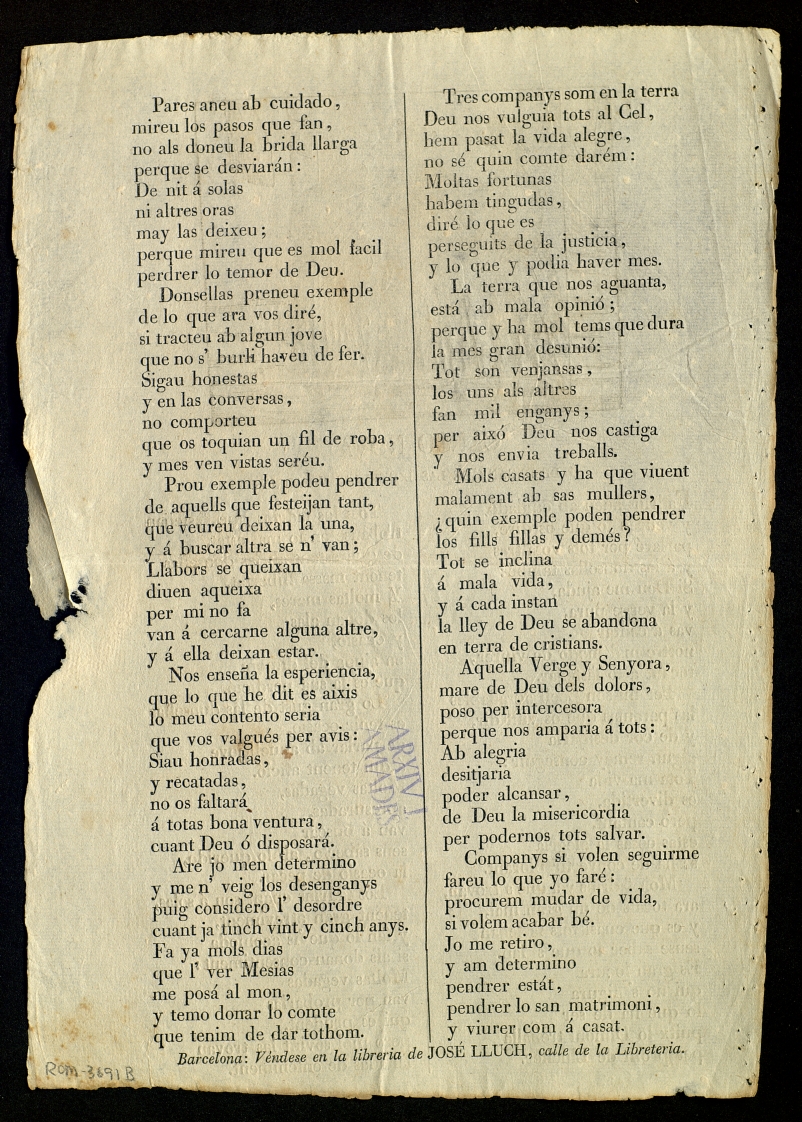 Pares aneu ab cuidado,
mireu los pasos que fan,
no als doneu la brida llarga
perque se desviarán:
De nit á solas
ni altres oras
may las deixeu;
perque mireu que es mol facil
perdrer lo temor de Deu.
Donsellas preneu exemple
de lo que ara vos diré,
si tracteu ab algun jove
que no s' burli haveu de fer.
Sigau honestas
y en las conversas,
no comporteu
que os toquian un fil de roba,
y mes ven vistas seréu.
Prou exemple podeu pendrer
de aquells que festeijan tant,
que veureu deixan la una,
y á buscar altra se n' van;
Llabors se queixan
diuen aqueixa
per mi no fa
van á cercarne alguna altre,
y á ella deixan estar.
Nos enseña la esperiencia,
que lo que he dit es aixis
lo meu contento seria
que vos valgués per avis:
Siau honradas,
y recatadas,
no os faltará
á totas bona ventura,
cuant Deu ó disposará.
Are jo men determino
y me n' veig los desenganys
puig considero l' desordre
cuant ja tinch vint y cinch anys.
Fa ya mols dias
que l' ver Mesias
me posá al mon,
y temo donar lo comte
que tenim de dar tothom.
Tres companys som en la terra
Deu nos vulguia tots al Cel,
hem pasat la vida alegre,
no sé quin comte darém:
Moltas fortunas
habem tingudas,
diré lo que es
perseguits de la justicia,
y lo que y podia haver mes.
La terra que nos aguanta,
está ab mala opinió;
perque y ha mol tems que dura
la mes gran desunió:
Tot son venjansas,
los uns als altres
fan mil enganys;
per aixó Deu nos castiga
y nos envia treballs.
Mols casats y ha que viuent
malament ab sas mullers,
¿quin exemple poden pendrer
los fills fillas y demés?
Tot se inclina
á mala vida,
y á cada instan
la lley de Deu se abandona
en terra de cristians.
Aquella Verge y Senyora,
mare de Deu dels dolors,
poso per intercesora
perque nos amparia á tots:
Ab alegria
desitjaria
poder alcansar,
de Deu la misericordia
per podernos tots salvar.
Companys si volen seguirme
fareu lo que yo faré:
procurem mudar de vida,
si volem acabar bé.
Jo me retiro,
y am determino
pendrer estát,
pendrer lo san matrimoni,
y viurer com á casat.
Barcelona: Véndese en la libreria de JOSÉ LLUCH, calle de la Libreteria.
ARXIU
AMADES
ROM-3691 B